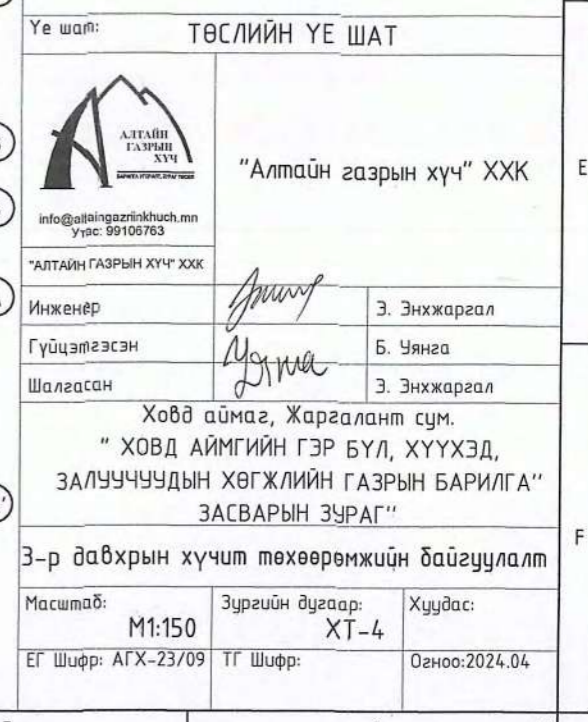 Үе шат: ТӨСЛИЙН ҮЕ ШАТ
АЛТАЙН
ГАЗРЫН
ХҮЧ
info@altaingazriinkhuch.mn
Утас: 99106763
"АЛТАЙН ГАЗРЫН ХҮЧ" ХХК
"Алтайн газрын хүч" ХХК
Инженер З. Энхжаргал
Гүйцэтгэсэн Уянга Б. Уянга
Шалгасан З. Энхжаргал
Ховд аймаг, Жаргалант сум.
" ХОВД АЙМГИЙН ГЭР БҮЛ, ХҮҮХЭД,
ЗАЛУУЧУУДЫН ХӨГЖЛИЙН ГАЗРЫН БАРИЛГА"
ЗАСВАРЫН ЗУРАГ"
3-р давхрын хүчит төхөөрөмжийн байгуулалт
Масштаб: Зургийн дугаар: Хуудас:
М1:150 ХТ-4
ЕГ Шифр: АГХ-23/09 ТГ Шифр: Огноо:2024.04
E
F